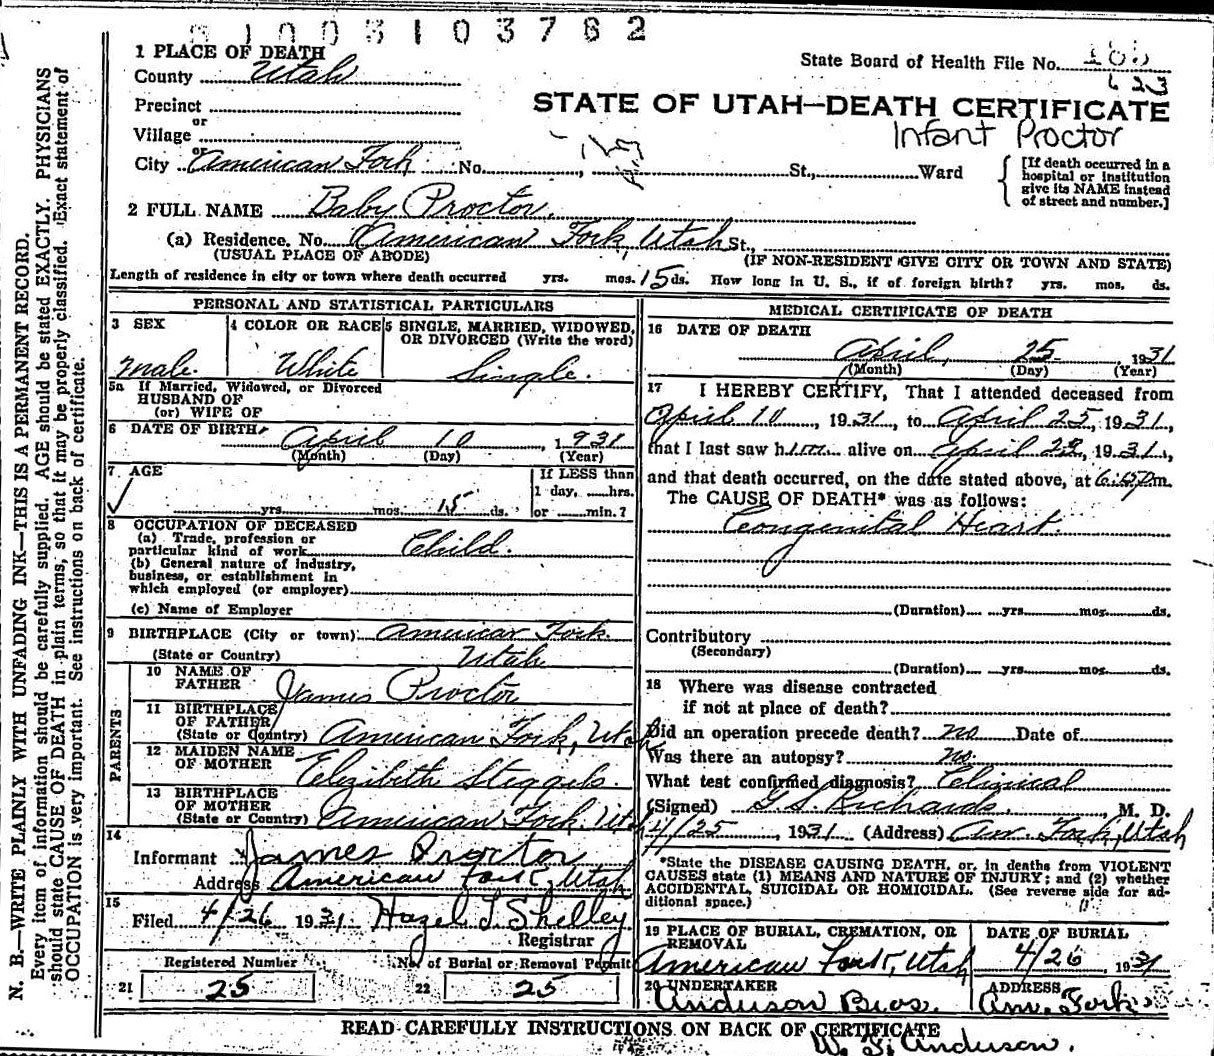 1003103762
1 PLACE OF DEATH
State Board of Health File No.
County Utah
623
STATE OF UTAH—DEATH CERTIFICATE
Precinct
or
Infant Proctor
Village
or
City American Fork No. St., Ward
[If death occurred in a hospital or institution give its NAME instead of street and number.]
2 FULL NAME Baby Proctor.
(a) Residence. No. American Fork, Utah St.,
(USUAL PLACE OF ABODE) (IF NON-RESIDENT GIVE CITY OR TOWN AND STATE)
Length of residence in city or town where death occurred yrs. mos. 15 ds. How long in U. S., if of foreign birth? yrs. mos. ds.
PERSONAL AND STATISTICAL PARTICULARS
3 SEX
Male.
4 COLOR OR RACE
White
5 SINGLE, MARRIED, WIDOWED, OR DIVORCED (Write the word)
Single.
5a If Married, Widowed, or Divorced
HUSBAND OF
(or) WIFE OF
6 DATE OF BIRTH
April 10 1931
(Month) (Day) (Year)
7 AGE
If LESS than
1 day, hrs.
yrs. mos. 15 ds. or min.?
8 OCCUPATION OF DECEASED
(a) Trade, profession or
particular kind of work Child.
(b) General nature of industry,
business, or establishment in
which employed (or employer)
(c) Name of Employer
9 BIRTHPLACE (City or town) American Fork.
(State or Country) Utah
PARENTS
10 NAME OF FATHER James Proctor
11 BIRTHPLACE OF FATHER
(State or Country) American Fork, Utah
12 MAIDEN NAME OF MOTHER Elizibeth Steggels.
13 BIRTHPLACE OF MOTHER
(State or Country) American Fork. Utah
14
Informant James Proctor
Address American Fork, Utah
15
Filed 4/26 1931 Hazel T. Shelley
Registrar
Registered Number
21 25
No. of Burial or Removal Permit
22 25
MEDICAL CERTIFICATE OF DEATH
16 DATE OF DEATH
April, 25 1931
(Month) (Day) (Year)
17 I HEREBY CERTIFY, That I attended deceased from
April 10, 1931, to April 25, 1931,
that I last saw him alive on April 23, 1931,
and that death occurred, on the date stated above, at m.
The CAUSE OF DEATH* was as follows:
Congenital Heart.
(Duration) yrs. mos. ds.
Contributory
(Secondary)
(Duration) yrs. mos. ds.
18 Where was disease contracted
if not at place of death?
Did an operation precede death? no Date of
Was there an autopsy? no.
What test confirmed diagnosis? Clinical
(Signed) G. S. Richards., M. D.
4/25, 1931 (Address) Am. Fork, Utah
*State the DISEASE CAUSING DEATH, or, in deaths from VIOLENT
CAUSES state (1) MEANS AND NATURE OF INJURY; and (2) whether
ACCIDENTAL, SUICIDAL OR HOMICIDAL. (See reverse side for ad-
ditional space.)
19 PLACE OF BURIAL, CREMATION, OR REMOVAL
American Fork, Utah
DATE OF BURIAL
4/26, 1931
20 UNDERTAKER
Anderson Bros.
ADDRESS
Am. Fork.
READ CAREFULLY INSTRUCTIONS ON BACK OF CERTIFICATE
Anderson.
N. B.—WRITE PLAINLY WITH UNFADING INK—THIS IS A PERMANENT RECORD.
Every item of information should be carefully supplied. AGE should be stated EXACTLY. PHYSICIANS
should state CAUSE OF DEATH in plain terms, so that it may be properly classified. Exact statement of
OCCUPATION is very important. See instructions on back of certificate.